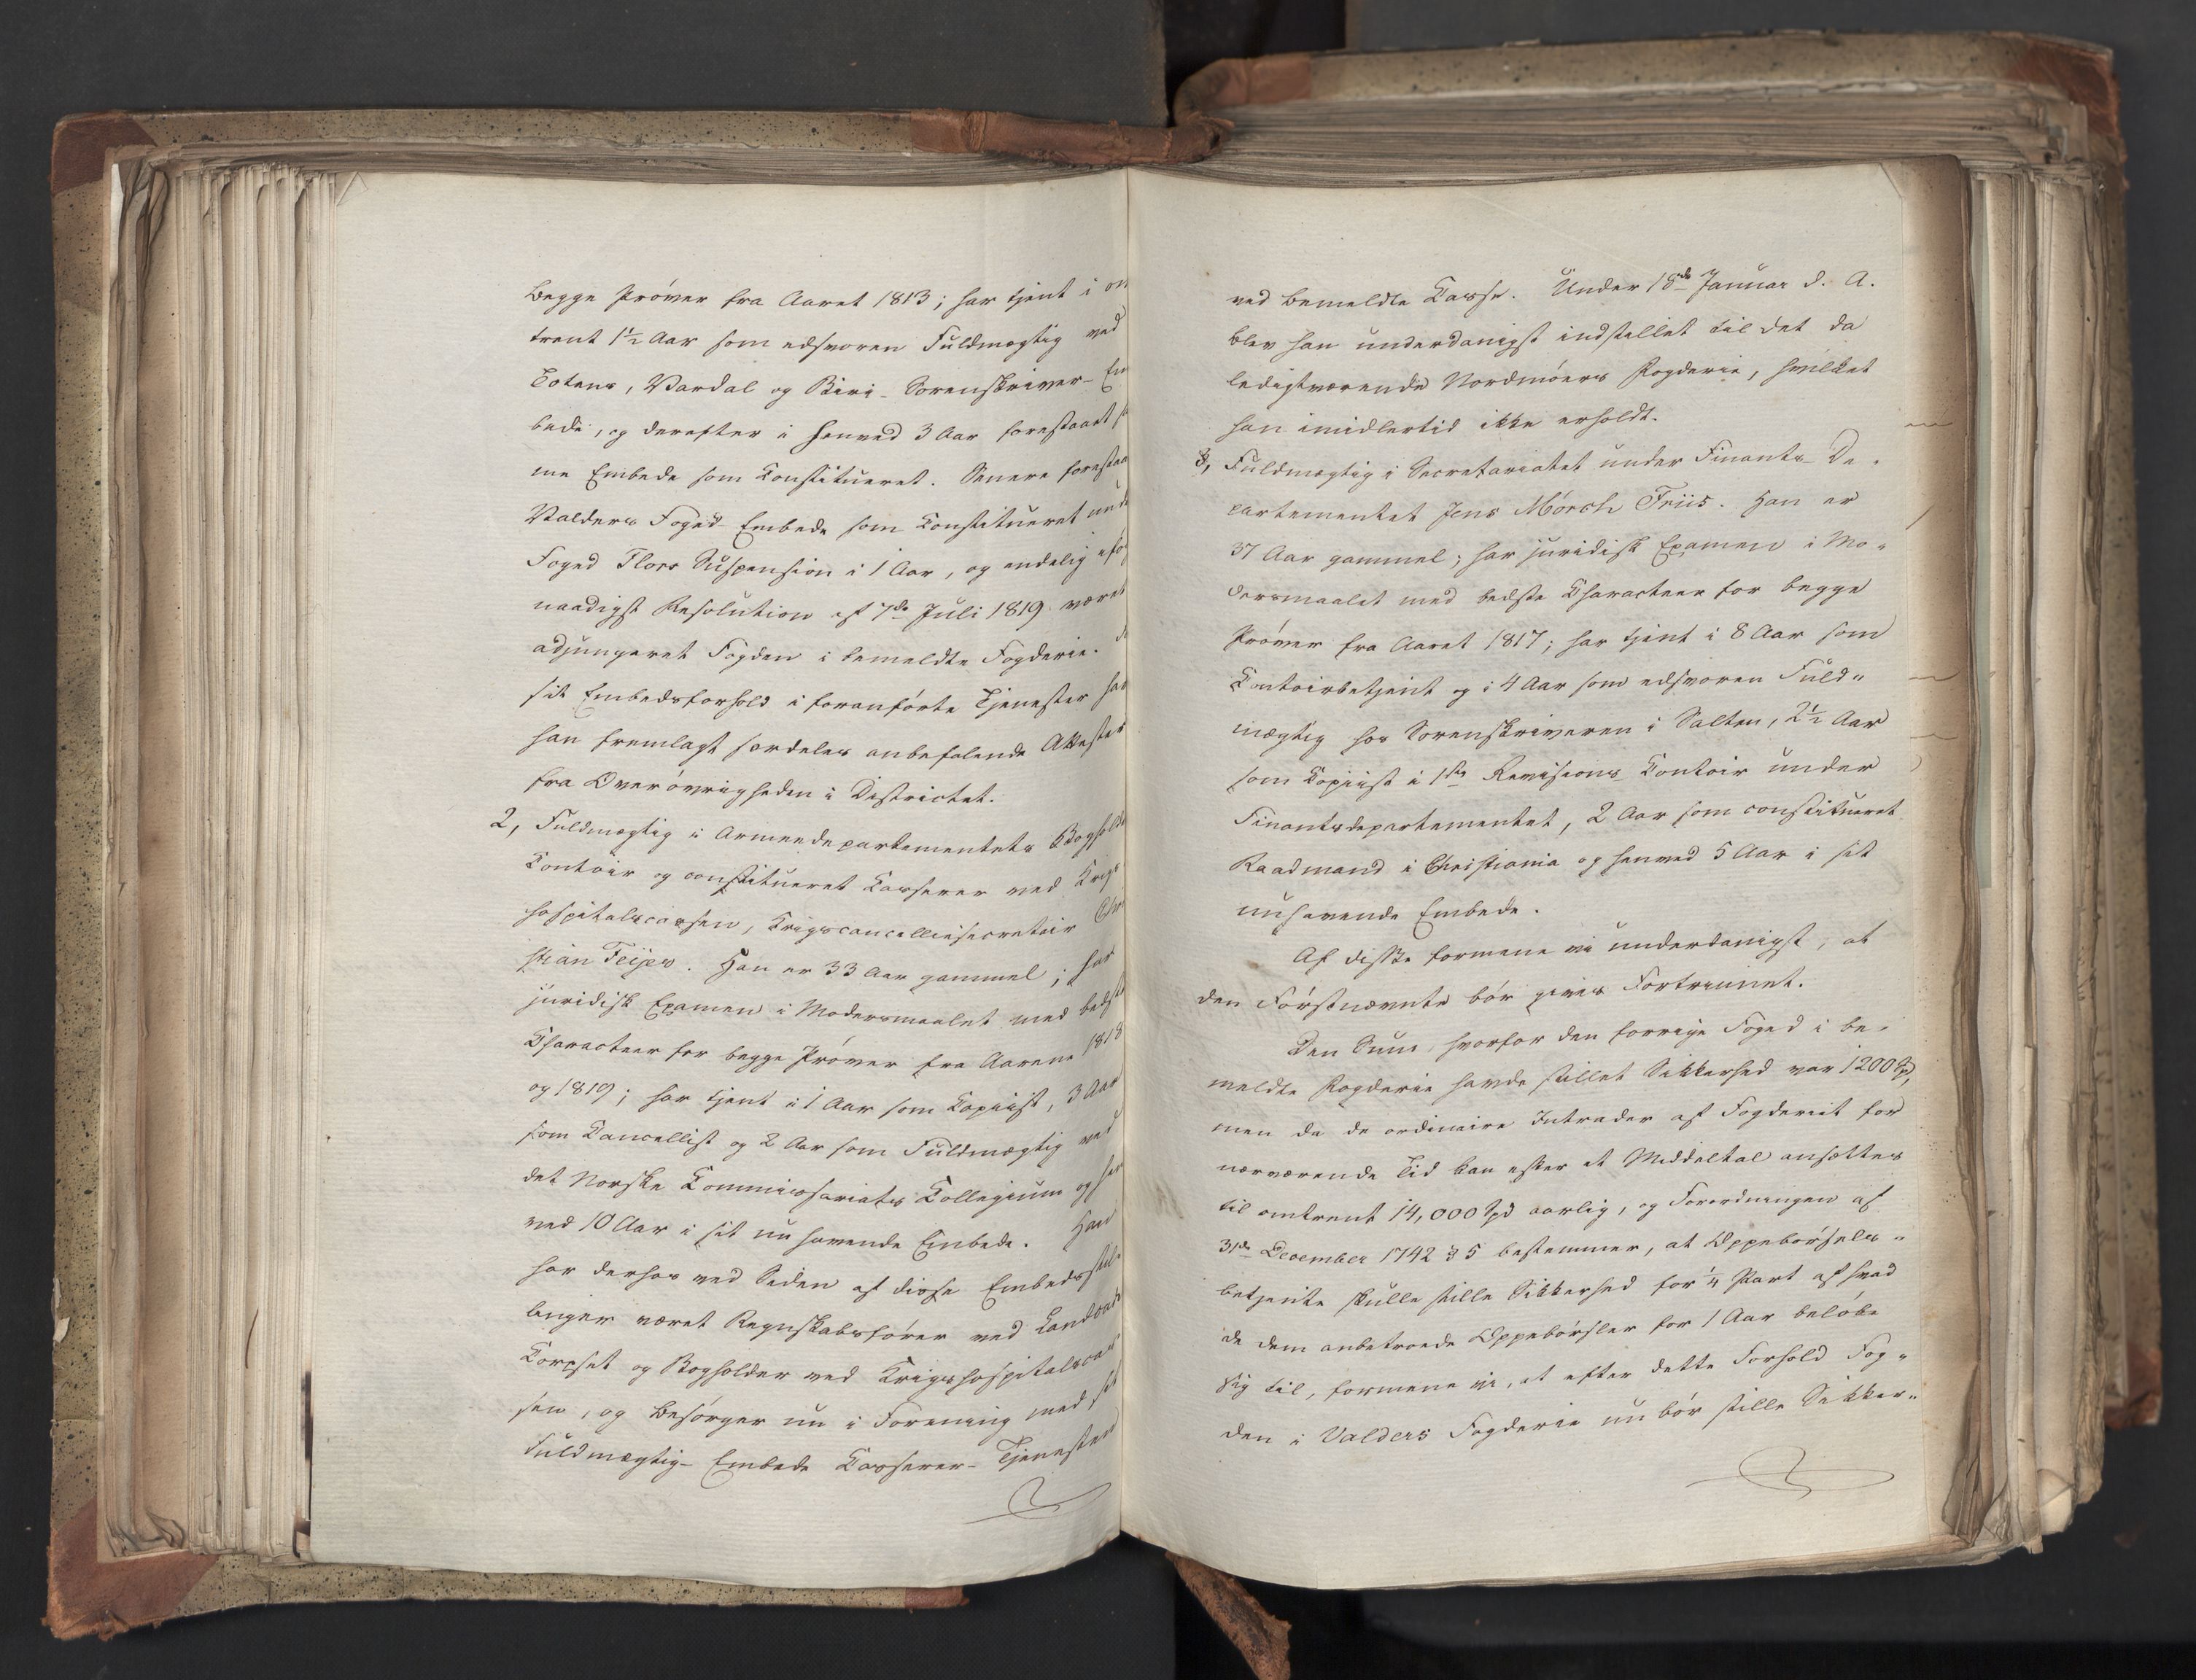 begge Prøver fra Aaret 1813; har tjent i om
trent 1½ Aar som edsvoren Fuldmægtig ved
Totens, Vardal og Biri-Sorenskriver-Em
bede, og derefter i henved 3 Aar forestaaet
me Embede som Constitueret. Senere forestaa
Valders Foged-Embede som Constitueret unde
Foged Flors Suspension i 1 Aar, og endelig
naadigst Resolution af 7de Juli 1819 været
adjungeret Fogden i bemeldte Fogderie.
sit Embedsforhold i foranførte Tjenester har
han fremlagt særdeles anbefalende Attester
fra Overøvrigheden i Districtet.
2, Fuldmægtig i Armeedepartementets Bogholde
Contoir og constitueret Casserer ved Krigs
hospitalscassen, Krigscancelliesecretair Chri
stian Feijer. Han er 33 Aar gammel; har
juridisk Examen i Modersmaalet med bedste
Characteer for begge Prøver fra Aarene 1818
og 1819; har tjent i 1 Aar som Copiist, 3 Aar
som Cancellist og 2 Aar som Fuldmægtig ved
det Norske Commissariats Collegium og hen
ved 10 Aar i sit nu havende Embede. Han
har derhos ved Siden af disse Embedsstil
linger været Regnskabsfører ved Landcadet
Corpset og Bogholder ved Krigshospitalscas
sen, og besørger nu i Forening med sit
Fuldmægtig-Embede Casserer-Tjenesten
ved bemeldte Casse. Under 18de Januar d. A.
blev han underdanigst indstillet til det da
ledigtværende Nordmøers Fogderie, hvilket
han imidlertid ikke erholdt.
3, Fuldmægtig i Secretariatet under Finants-De-
partementet Jens Mørch Friis. Han er
37 Aar gammel; har juridisk Examen i Mo-
dersmaalet med bedste Characteer for begge
Prøver fra Aaret 1817; har tjent i 8 Aar som
Contoirbetjent og i 4 Aar som edsvoren Fuld-
mægtig hos Sorenskriveren i Salten, 2½ Aar
som Copiist i 1ste Revisions Contoir under
Finantsdepartementet, 2 Aar som constitueret
Raadmand i Christiania og henved 5 Aar i sit
nuhavende Embede.
Af disse formene vi underdanigst, at
den Førstnævnte bør gives Fortrinnet.
Den Sum, hvorfor den forrige Foged i be-
meldte Fogderie havde stillet Sikkerhed var 1200 Spd,
men da de ordinaire Intrader af Fogderiet for
nærværende Tid kan efter et Middeltal ansættes
til omtrent 14,000 Spd aarlig, og Forordningen af
31de December 1742 § 5 bestemmer, at Oppebørsels-
betjente skulle stille Sikkerhed for ¼ Part af hvad
de dem anbetroede Oppebørsler for 1 Aar beløbe
sig til, formene vi, at efter dette Forhold Fog-
den i Valders Fogderie nu bør stille Sikker-